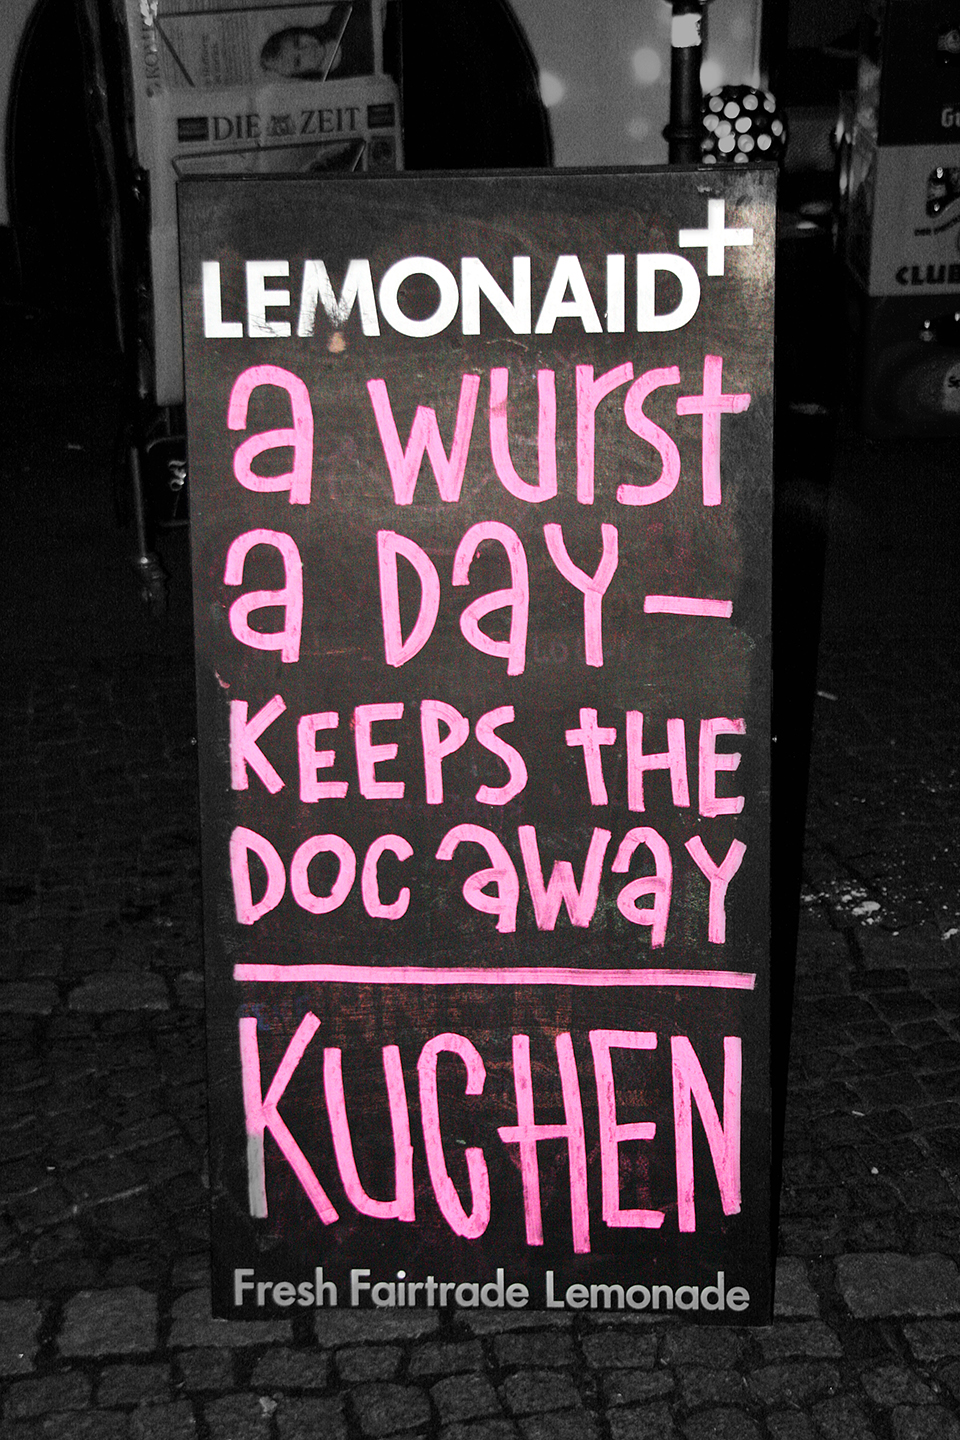 DIE ZEIT
LEMONAID+
a wurst
a Day—
KEEPS tHE
DOC away
KUCHEN
Fresh Fairtrade Lemonade
CLUB